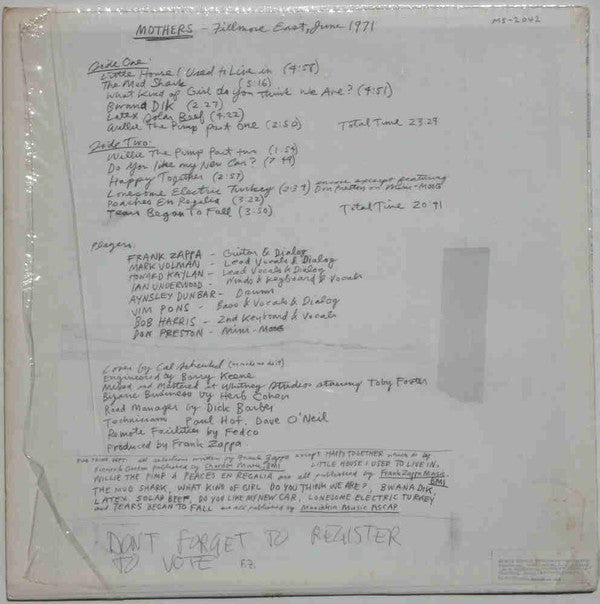 MOTHERS - Fillmore East, June 1971
MS-2042
Side One:
Little House I Used to Live in (4:58)
The Mud Shark (5:16)
What Kind of Girl do you Think We Are? (4:51)
Bwana DIK (2:27)
Latex Solar Beef (4:22)
Willie The Pimp part one (2:50) Total Time 23:29
Side Two:
Willie The Pimp part two (1:54)
Do You like my New Car? (7:49)
Happy Together (2:57)
Lonesome Electric Turkey (2:34) encore excerpt featuring Don Preston on Mini-Moog
Peaches En Regalia (3:22)
Tears Began To Fall (3:50) Total Time 20:41
Players:
FRANK ZAPPA - Guitar & Dialog
MARK VOLMAN - Lead Vocals & Dialog
HOWARD KAYLAN - Lead Vocals & Dialog
IAN UNDERWOOD - Winds & Keyboard & Vocals
AYNSLEY DUNBAR - Drums
JIM PONS - Bass & Vocals & Dialog
BOB HARRIS - 2nd Keyboard & Vocals
DON PRESTON - Mini-Moog
Cover by Cal Schenkel
Engineered by Barry Keene
Mixed and Mastered at Whitney Studios starring Toby Foster
Bizarre Business by Herb Cohen
Road Manager by Dick Barber
Technicians Paul Hof, Dave O'Neil
Remote Facilities by Fedco
Produced by Frank Zappa
all selections written by Frank Zappa except HAPPY TOGETHER which is by
published by Chardon Music, BMI LITTLE HOUSE I USED TO LIVE IN,
WILLIE THE PIMP & PEACES EN REGALIA are all published by Frank Zappa Music, BMI
THE MUD SHARK, WHAT KIND OF GIRL DO YOU THINK WE ARE?, BWANA DIK,
LATEX SOLAR BEEF, DO YOU LIKE MY NEW CAR, LONESOME ELECTRIC TURKEY
and TEARS BEGAN TO FALL are all published by Music ASCAP
DON'T FORGET TO REGISTER
TO VOTE F.Z.